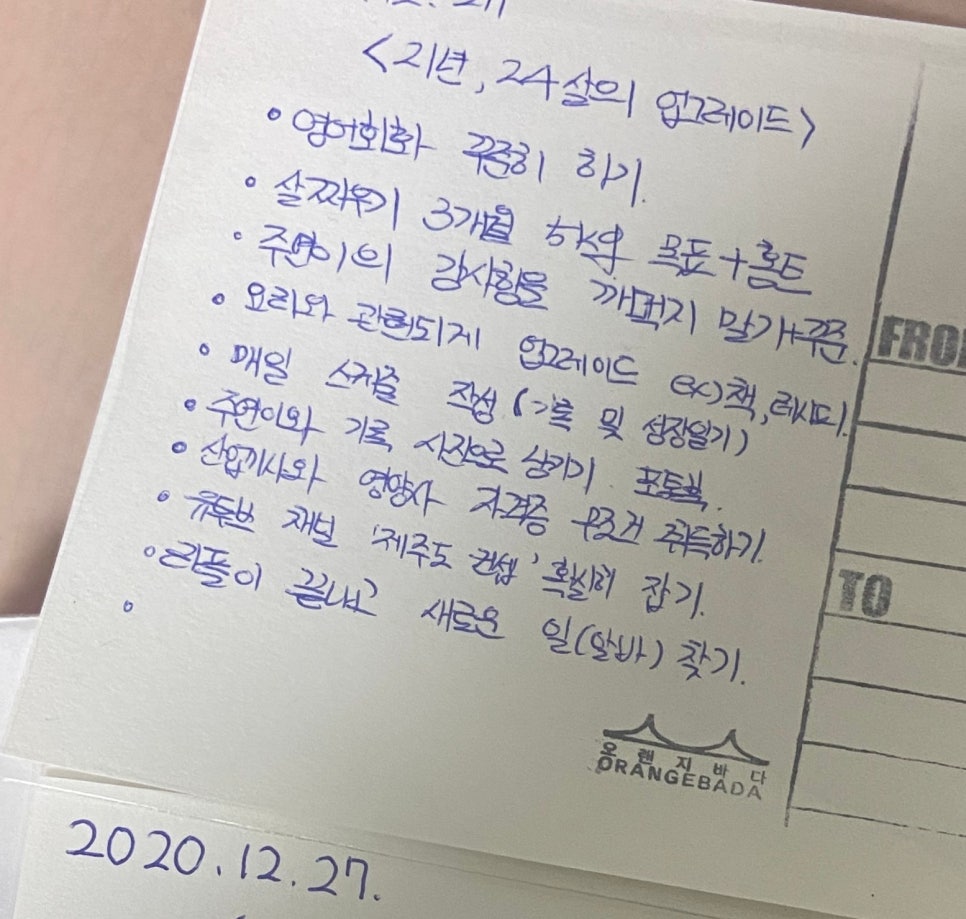 <21년, 24살의 업그레이드>
• 영어회화 꾸준히 하기.
• 살찌우기 3개월 5kg 목표 + 홈트
• 주연이의 감사함을 까먹지 말기+꾸준.
• 요리와 관련되게 업그레이드 ex)책, 레시피).
• 매일 스케줄 작성 (기록 및 성장일기)
• 주연이와 기록, 사진으로 남기기. 포토북.
• 산업기사와 영양사 자격증 무조건 취득하기.
• 유튜브 채널 '제주도 컨셉' 확실히 잡기.
• 리플이 끝내고 새로운 일(알바) 찾기.
•
FRO
TO
오렌지바다
ORANGEBADA
2020.12.27.